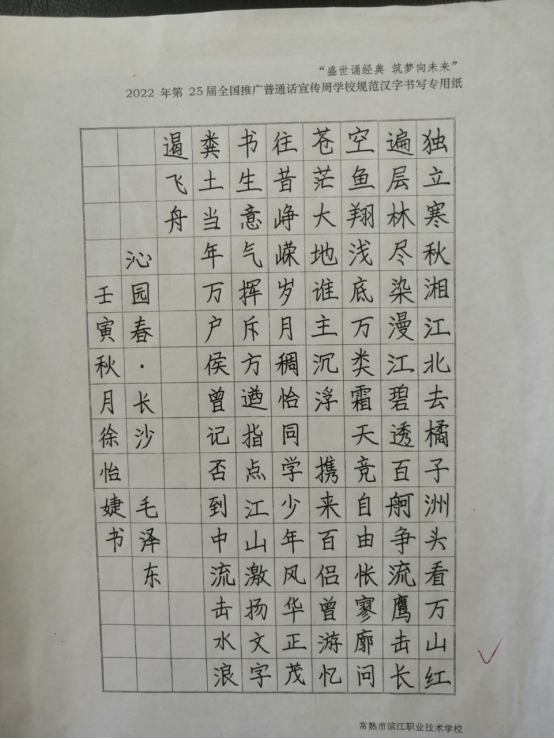 “盛世诵经典 筑梦向未来”
2022 年第 25 届全国推广普通话宣传周学校规范汉字书写专用纸
独立寒秋湘江北去橘子洲头看万山红
遍层林尽染漫江碧透百舸争流鹰击长
空鱼翔浅底万类霜天竞自由怅寥廓问
苍茫大地谁主沉浮 携来百侣曾游忆
往昔峥嵘岁月稠恰同学少年风华正茂
书生意气挥斥方遒指点江山激扬文字
粪土当年万户侯曾记否到中流击水浪
遏飞舟
沁园春·长沙 毛泽东
壬寅秋月徐怡婕书
常熟市滨江职业技术学校